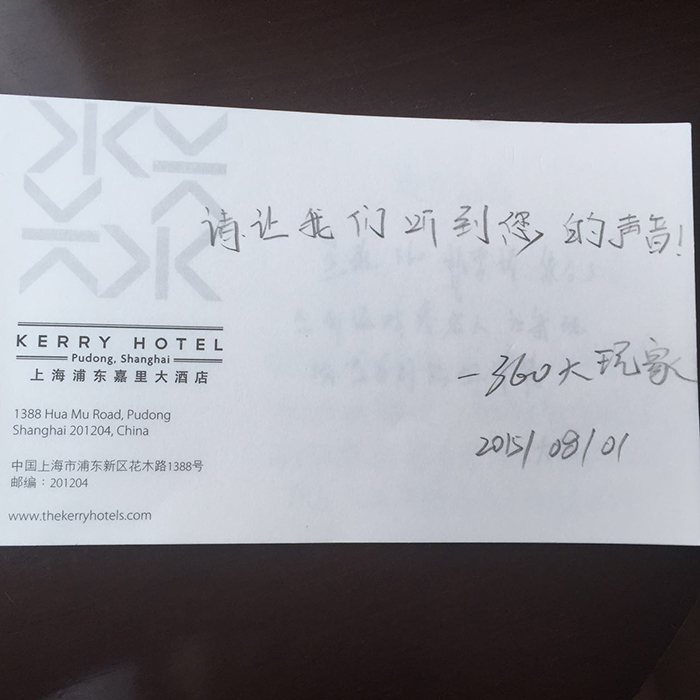 请让我们听到您的声音!
—360大玩家
2015/08/01
KERRY HOTEL
Pudong, Shanghai
上海浦东嘉里大酒店
1388 Hua Mu Road, Pudong
Shanghai 201204, China
中国上海市浦东新区花木路1388号
邮编：201204
www.thekerryhotels.com